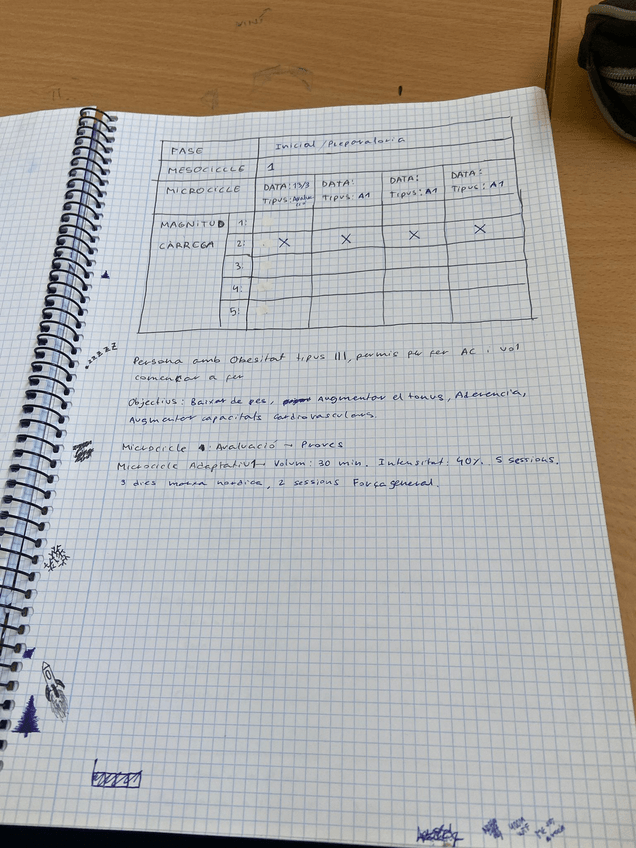 FASE Inicial / Preparatoria
MESOCICLE 1
MICROCICLE DATA: 13/3 DATA: DATA: DATA:
TIPUS: TIPUS: A1 TIPUS: A1 TIPUS: A1
MAGNITUD 1:
CÀRREGA 2: X X X X
3:
4:
5:
zzzzz
Persona amb Obesitat tipus III, permis per fer AC i vol
començar a fer
Objectius: Baixar de pes, Augmentar el tonus, Aderencia,
Augmentar capacitats cardiovasculars.
Microcicle 1: Avaluació → Proves
Microcicle Adaptatiu 1 → Volum: 30 min. Intensitat: 40%. 5 sessions.
3 dies marxa nordica, 2 sessions Força general.